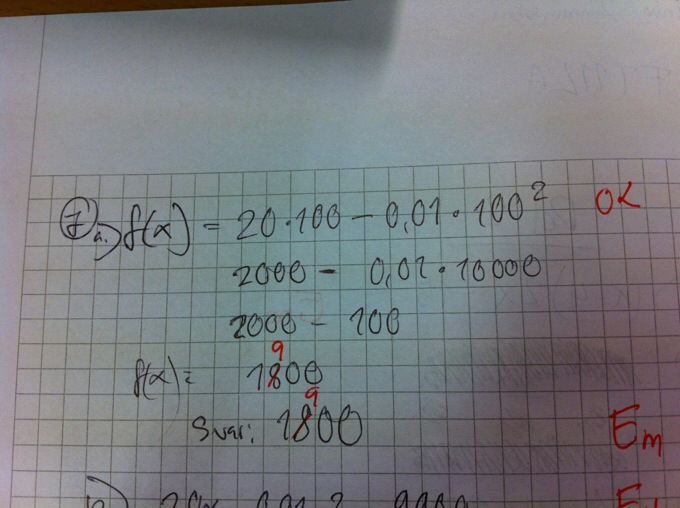 7 a.) f(x) = 20·100 − 0,01·100² OK
2000 − 0,01·10000
2000 − 100
9
f(x) = 1800
9
Svar: 1800
Em